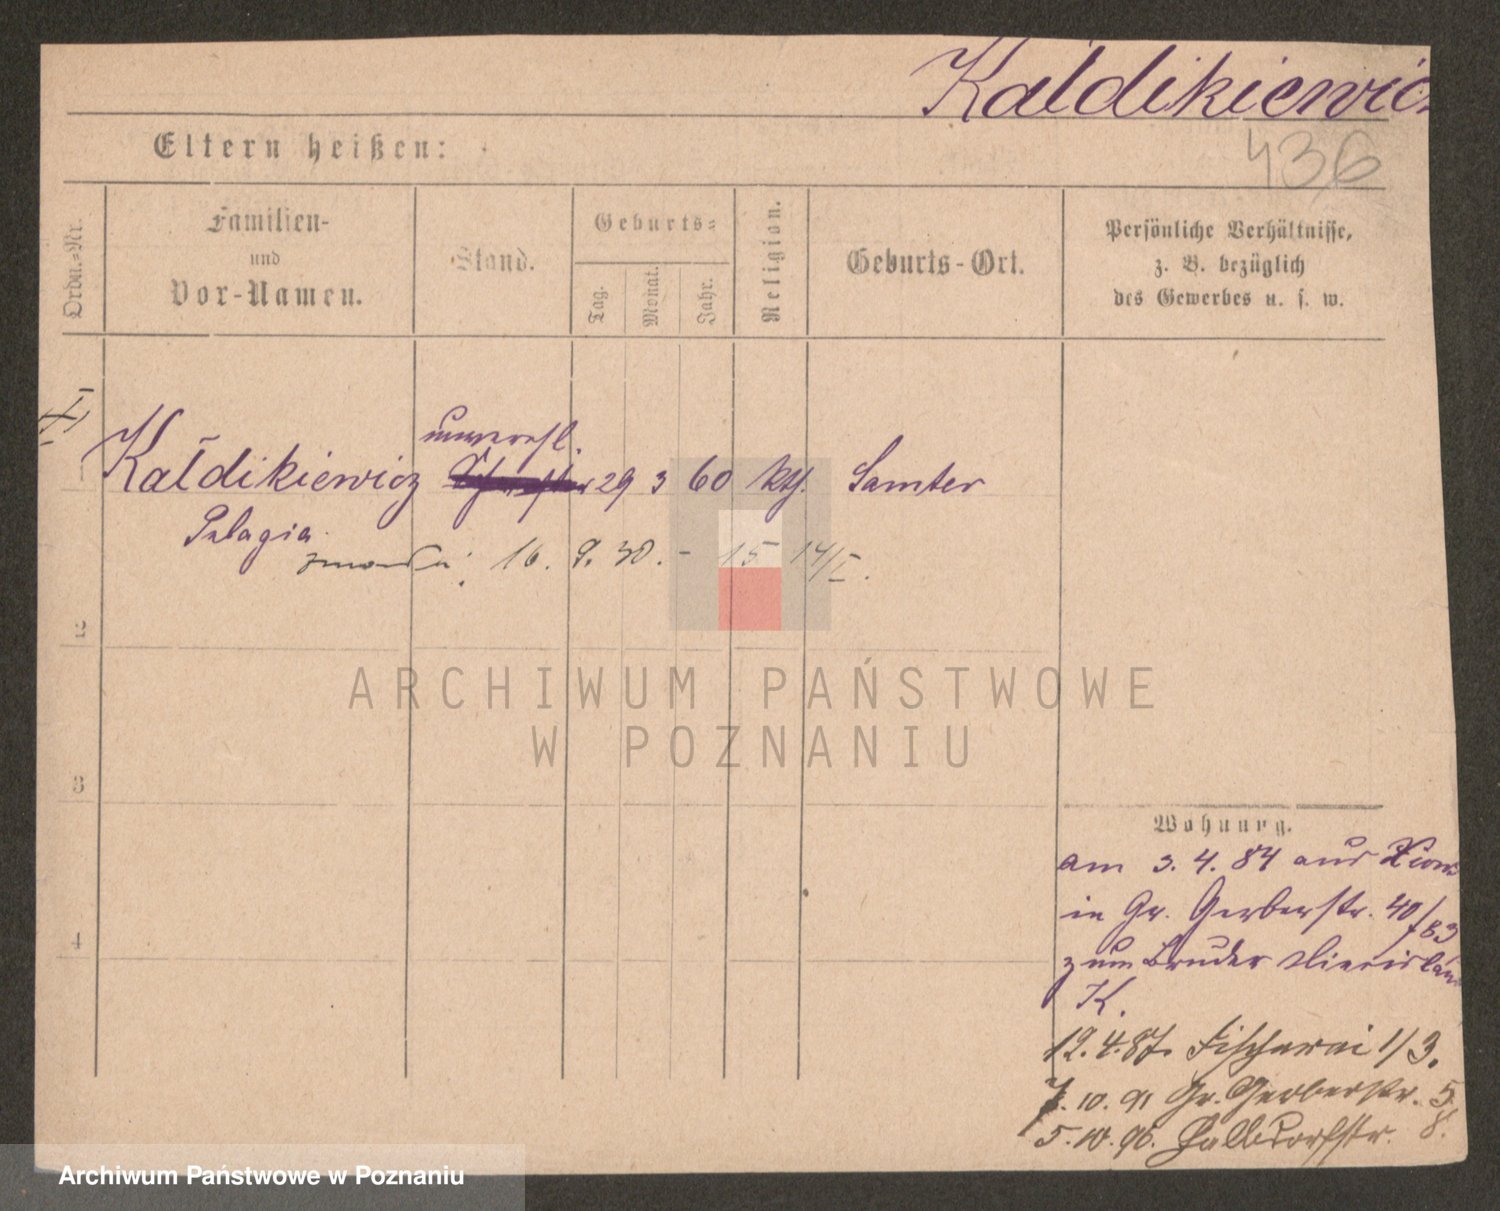 Kaldikiewicz
436
Eltern heißen:
Ordn.-Nr.
Familien- und Vor-Namen.
Stand.
Geburts-
Tag.
Monat.
Jahr.
Religion.
Geburts-Ort.
Persönliche Verhältnisse,
z. B. bezüglich
des Gewerbes u. s. w.
unverehl.
Kałdikiewicz 29 3 60 kth. Samter
Pelagia
zmarła: 16. 9. 30. - 15 14/I.
2
3
4
ARCHIWUM PAŃSTWOWE
W POZNANIU
Wohnung.
am 3. 4. 84 aus Xions
in Gr. Gerberstr. 40/
zum Bruder
K.
12. 4. 87. Fischerei 1/3.
7. 10. 91 Gr. Gerberstr. 5.
5. 10. 96. Halbdorfstr. 8.
Archiwum Państwowe w Poznaniu